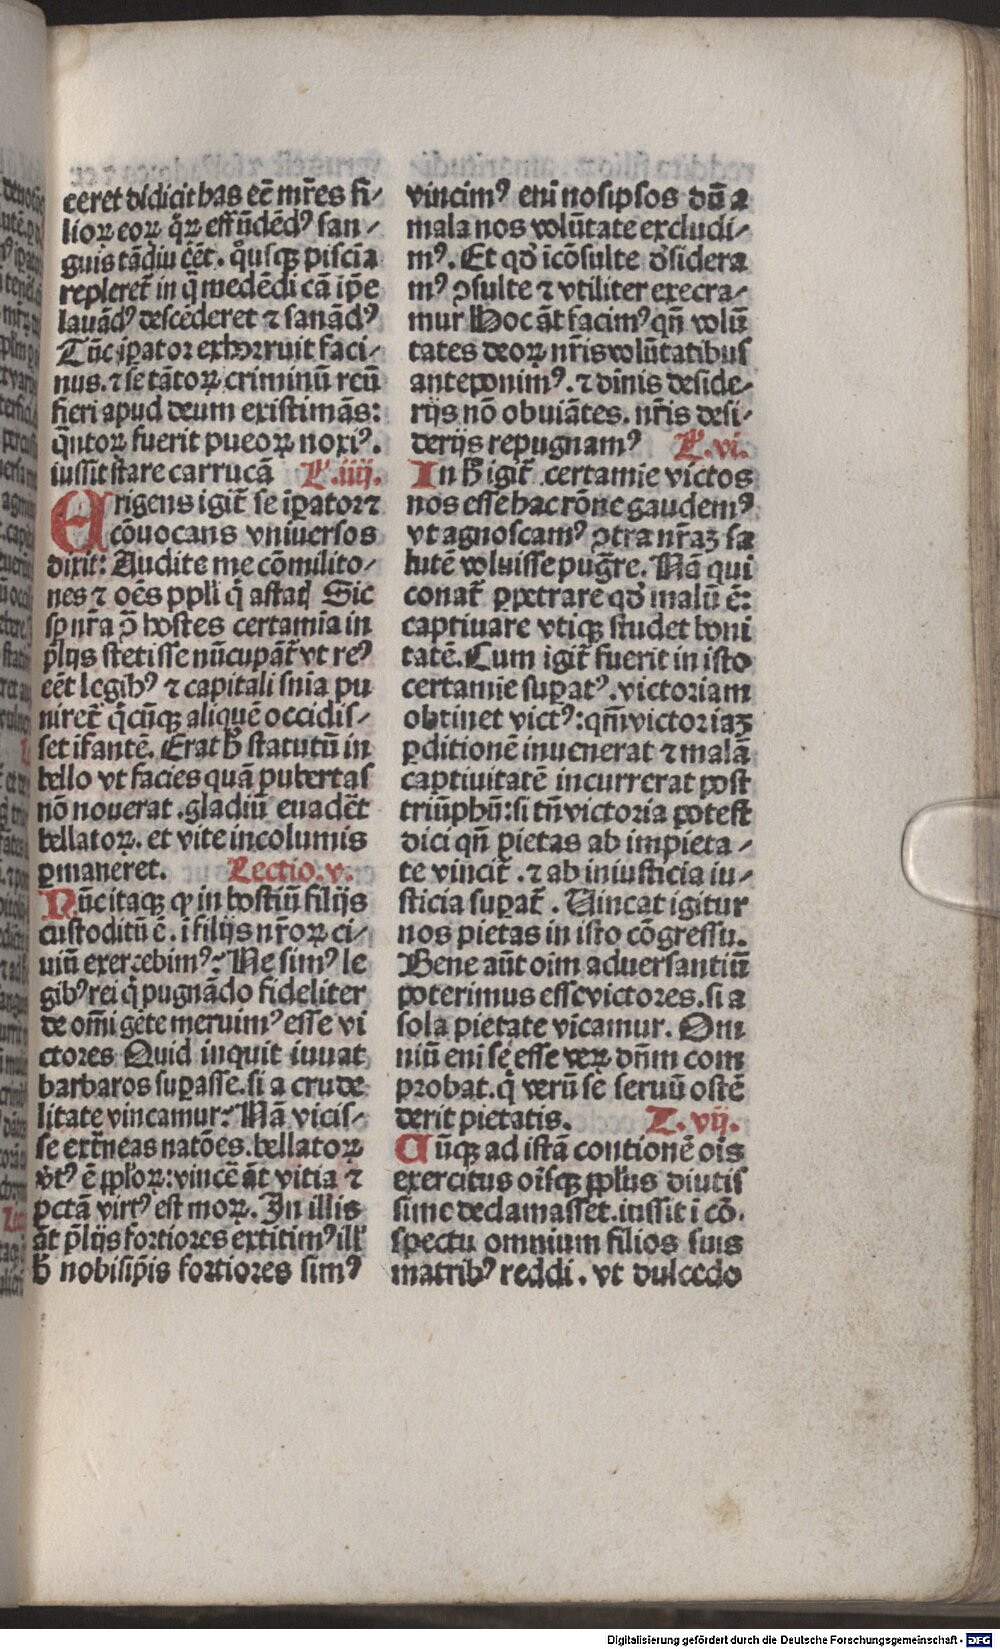 ceret didicit has eē mr̄es fi⸗
lioꝝ eoꝝ q̊ꝝ effūdēdꝰ san⸗
guis tādiu ēēt. q̊usqꝫ piscīa
repleret̄ in q̄ medēdi cā ip̄e
lauādꝰ descēderet ⁊ sanādꝰ
Tūc īꝑator exhorruit faci⸗
nus. ⁊ se tātoꝝ criminū reū
fieri apud deum existimās:
q̄ntoꝝ fuerit pueoꝝ noxiꝰ.
iussit stare carrucā L̕.iiij.
Erigens igit̄ se īꝑator ⁊
cōuocans vniuersos
dixit: Audite me cōmilito⸗
nes ⁊ oēs ppl̄i q̄ astatꝭ Sic
sp̄ nr̄a ꝓ hostes certamīa in
p̄lijs stetisse nūcupāt̄ vt reꝰ
eēt legibꝰ ⁊ capitali sn̄ia pu
niret̄ q̄cūqꝫ aliquē occidis⸗
set ifantē. Erat h̄ statutū in
bello vt facies quā pubertas
nō nouerat .gladiū euadēt
bellatoꝝ. et vite incolumis
ꝑmaneret. Lectio.v.
Nūc itaqꝫ qđ in hostiū filijs
custoditū ē. i filijs nr̄oꝝ ci⸗
uiū exercebimꝰ? Ne simꝰ le
gibꝰ rei q̄ pugnādo fideliter
de om̄i gēte meruimꝰ esse vi
ctores Quid inquit iuuat
barbaros suꝑasse. si a crude
litate vincamur? Nā vicis⸗
se ext̄neas natōes. bellatoꝝ
v̄tꝰ ē ppl̄oꝝ: vincē āt vitia ⁊
pctā virtꝰ est moꝝ. In illis
āt p̄lijs fortiores extitimꝰ ill̕
h̄ nobisip̄is fortiores simꝰ
vincimꝰ enī nosipsos dū a
mala nos volūtate excludi⸗
mꝰ. Et qđ icōsulte đsidera
mꝰ ↄsulte ⁊ vtiliter execra⸗
mur Hoc āt facimꝰ qn̄ volū
tates deoꝝ nr̄is volūtatibus
anteponimꝰ. ⁊ diuīs deside⸗
rijs nō obuiātes. nr̄is desi⸗
derijs repugnamꝰ L̕.vi.
In h̄ igit̄ certamie victos
nos esse hac rōne gaudemꝰ
vt agnoscamꝰ ↄtra nr̄aꝫ sa
lutē voluisse pug̊re. Nā qui
conat̄ ꝑpetrare qđ malū ē:
captiuare vtiqꝫ studet boni
tatē. Cum igit̄ fuerit in isto
certamie suꝑatꝰ. victoriam
obtinet victꝰ: qm̄ victoriaꝫ
ꝑditionē inuenerat ⁊ malā
captiuitatē incurrerat post
triūphū: si tn̄ victoria potest
dici qn̄ pietas ab impieta⸗
te vincit̄. ⁊ ab iniusticia iu⸗
sticia suꝑat̄. Vincat igitur
nos pietas in isto cōgressu.
Bene aūt oim aduersantiū
poterimus esse victores. si a
sola pietate vīcamur. Om
niū eni se esse veꝝ dn̄m com
probat. q̄ verū se seruū ostē
derit pietatis. L.vij.
Cūqꝫ ad istā contionē oīs
exercitus oīsqꝫ ppl̄us diutis
sime declamasset. iussit ī cō⸗
spectu omnium filios suis
matribꝰ reddi. vt dulcedo
Digitalisierung gefördert durch die Deutsche Forschungsgemeinschaft - DFG